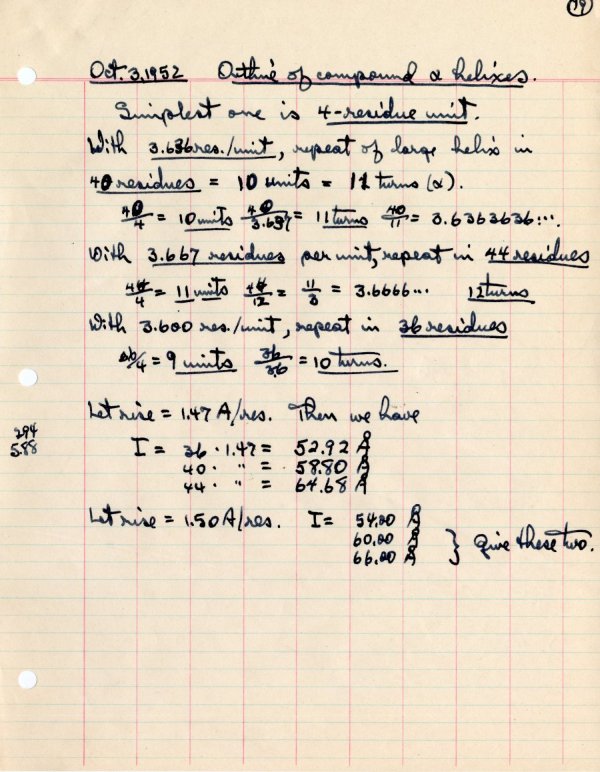 19
Oct. 3, 1952 Outline of compound α helixes.
Simplest one is 4-residue unit.
With 3.636 res./unit, repeat of large helix in
40 residues = 10 units = 11 turns (α).
40/4 = 10 units 40/3.637 = 11 turns 40/11 = 3.6363636...
With 3.667 residues per unit, repeat in 44 residues
44/4 = 11 units 44/12 = 11/3 = 3.6666... 12 turns
With 3.600 res./unit, repeat in 36 residues
36/4 = 9 units 36/3.6 = 10 turns.
Let rise = 1.47 A/res. Then we have
294
588
I = 36 · 1.47 = 52.92 Å
40 · " = 58.80 Å
44 · " = 64.68 Å
Let rise = 1.50 A/res. I = 54.00 Å
60.00 Å
66.00 Å } Give these two.